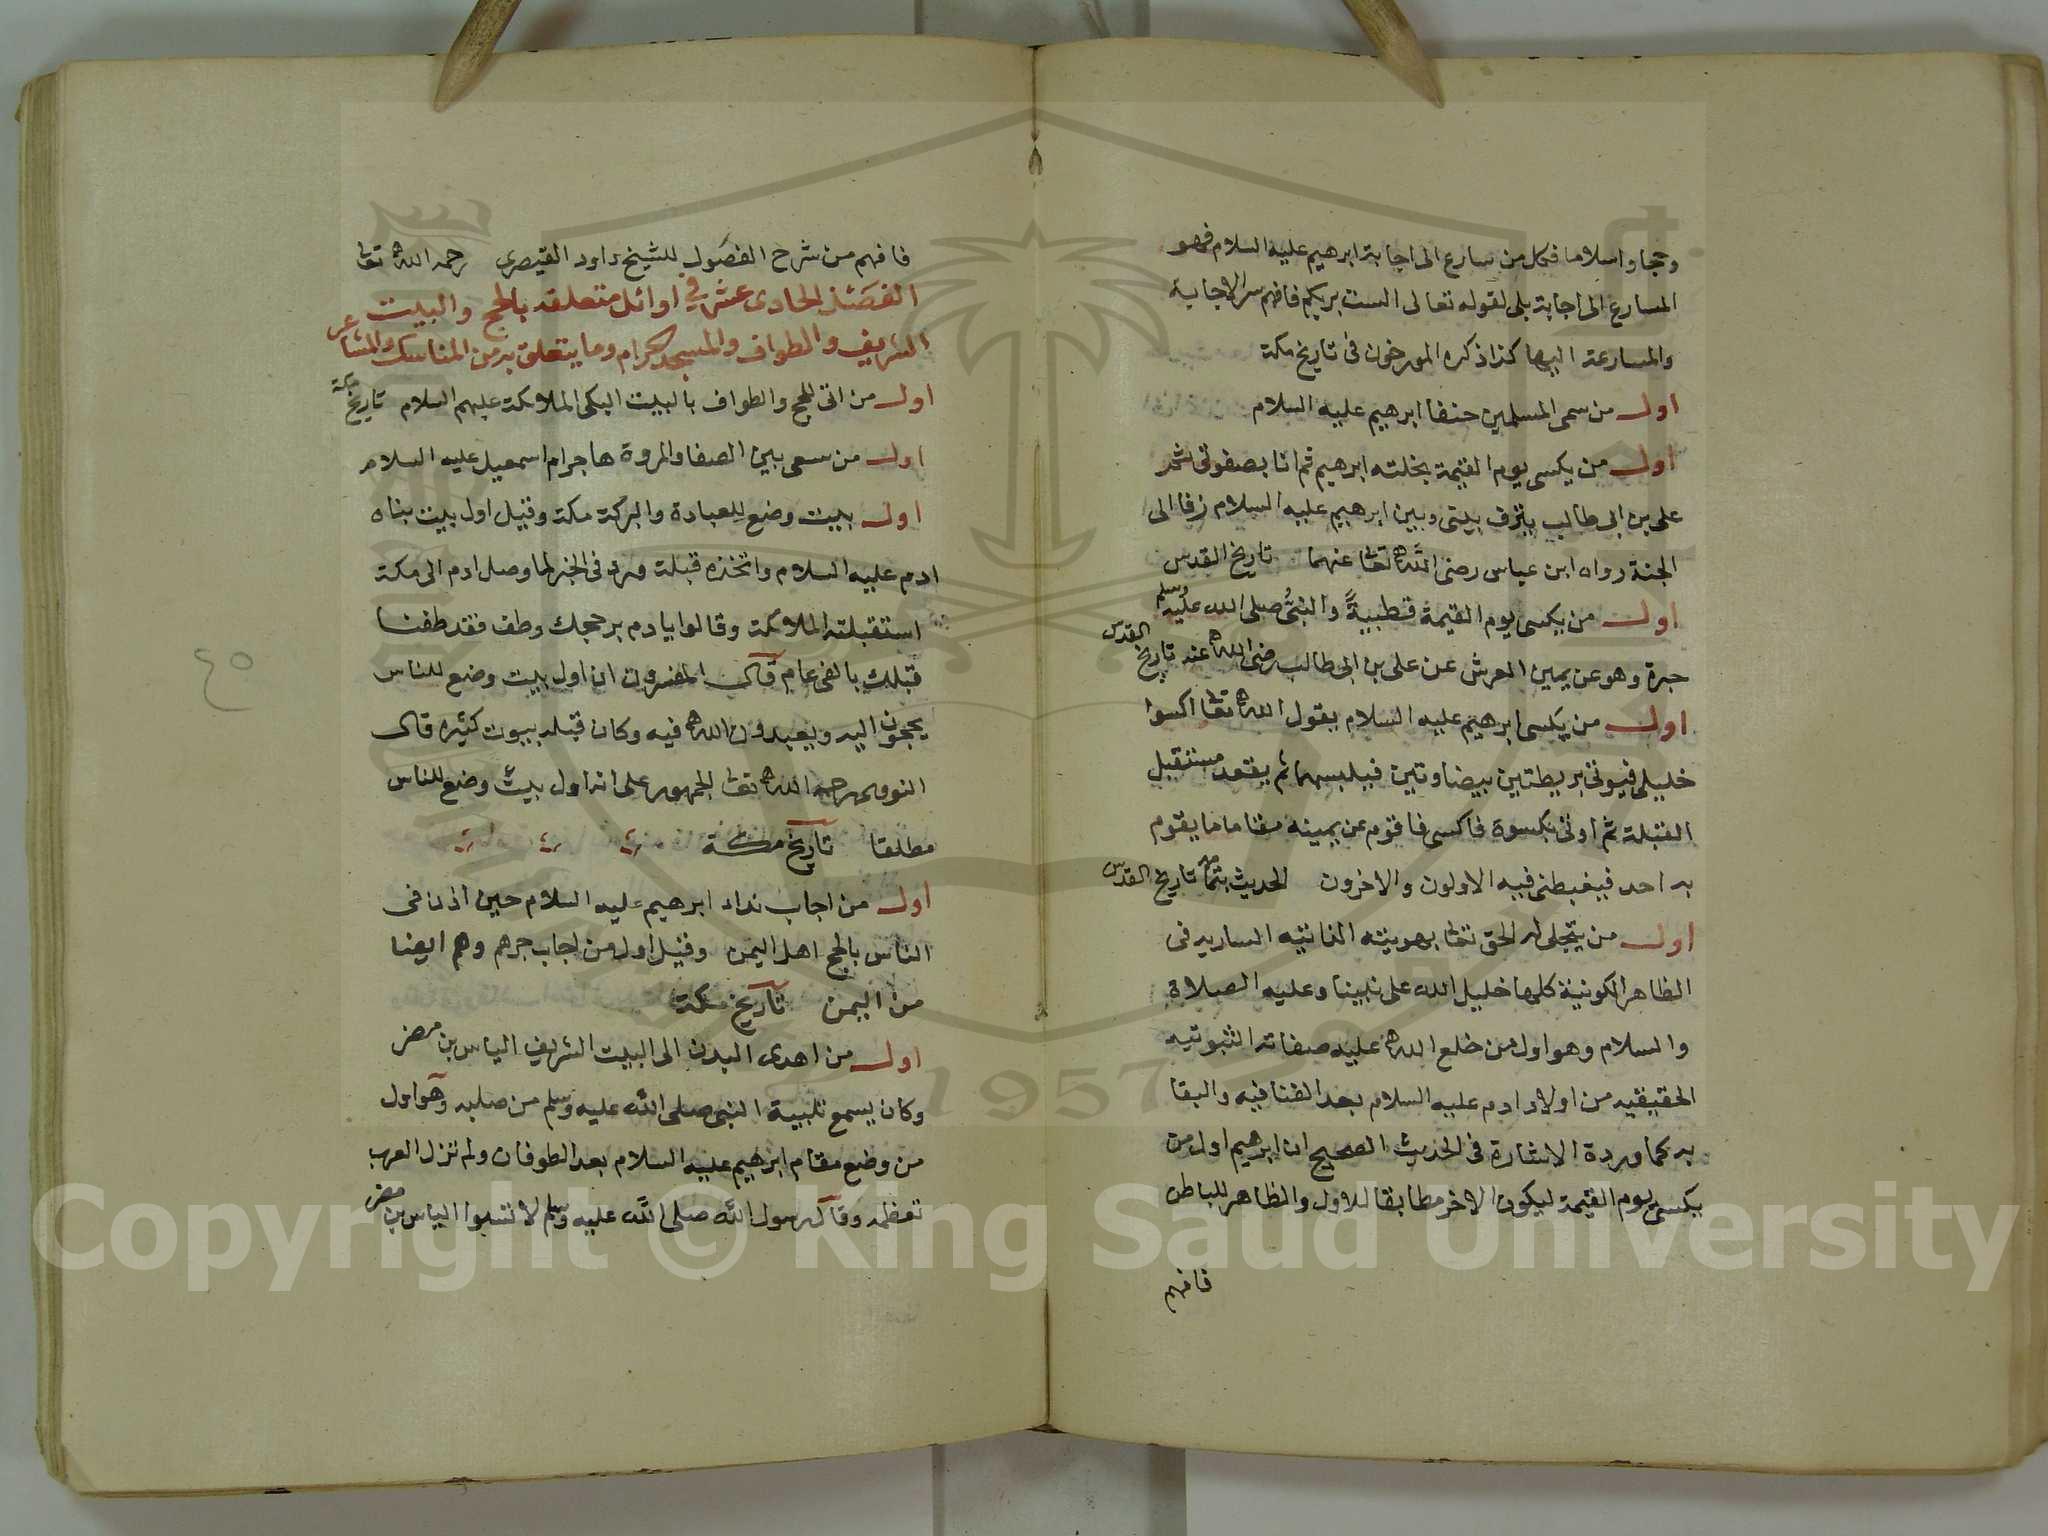 وحجا واسلاما فكل من سارع الى اجابة ابرهيم عليه السلام فهو
المسارع الى اجابة بلى لقوله تعالى الست بربكم فافهم سر الاجابة
والمسارعة اليها كذا ذكره المورخون فى تاريخ مكة
اول من سمى المسلمين حنفا ابرهيم عليه السلام
اول من يكسى يوم القيمة بخلته ابرهيم ثم انا بصفوتى ثم
على بن ابى طالب يزف بينى وبين ابرهيم عليه السلام زفا الى
الجنة رواه ابن عباس رضى الله تعا عنهما تاريخ القدس
اول من يكسى يوم القيمة قطبية والنبى صلى الله عليه وسلم
حبرة وهو عن يمين العرش عن على بن ابى طالب رضى الله عنه تاريخ القدس
اول من يكسى ابرهيم عليه السلام يقول الله تعا اكسوا
خليلى فيوتى بريطتين بيضاوتين فيلبسهما ثم يقعد مستقبل
القبلة ثم اوتى بكسوة فاكسى فاقوم عن يمينه مقاما ما يقوم
به احد فيغبطنى فيه الاولون والاخرون الحديث بتمامه تاريخ القدس
اول من يتجلى له الحق تعا بهويته الذاتيه الساريه فى
الظاهر الكونية كلها خليل الله على نبينا وعليه الصلاة
والسلام وهو اول من خلع الله عليه صفاته الثبوتيه
الحقيقيه من اولاد ادم عليه السلام بعد الفنا فيه والبقا
به كما وردة الاشارة فى الحديث الصحيح ان ابرهيم اول من
يكسى يوم القيمة ليكون الاخر مطابقا للاول والظاهر للباطن
فافهم
فافهم من شرح الفصول للشيخ داود القيصرى رحمه الله تعا
الفصل الحادى عشر فى اوائل متعلقه بالحج والبيت
الشريف والطواف والمسجد الحرام وما يتعلق به من المناسك والمشاعر
اول من اتى للحج والطواف بالبيت البكى الملائكة عليهم السلام تاريخ مكة
اول من سعى بين الصفا والمروة هاجر ام اسمعيل عليه السلام
اول بيت وضع للعبادة والبركة مكة وقيل اول بيت بناه
ادم عليه السلام واتخذه قبلة ورد فى الخبر لما وصل ادم الى مكة
استقبلته الملائكة وقالوا يا دم بر حجك وطف فقد طفنا
قبلك بالفى عام قال المفسرون ان اول بيت وضع للناس
يحجون اليه ويعبدون الله فيه وكان قبله بيوت كثيره قال
النووى رحمه الله تعا الجمهور على انه اول بيت وضع للناس
مطلقا تاريخ مكة
اول من اجاب نداء ابرهيم عليه السلام حين اذن فى
الناس بالحج اهل اليمن وقيل اول من اجاب جرهم وهم ايضا
من اليمن تاريخ مكة
اول من اهدى البدن الى البيت الشريف الياس بن مضر
وكان يسمع تلبية النبى صلى الله عليه وسلم من صلبه وهو اول
من وضع مقام ابرهيم عليه السلام بعد الطوفان ولم تزل العرب
تعظمه وقال رسول الله صلى الله عليه وسلم لا تسبوا الياس بن مضر
٤٥
1957
Copyright © King Saud University